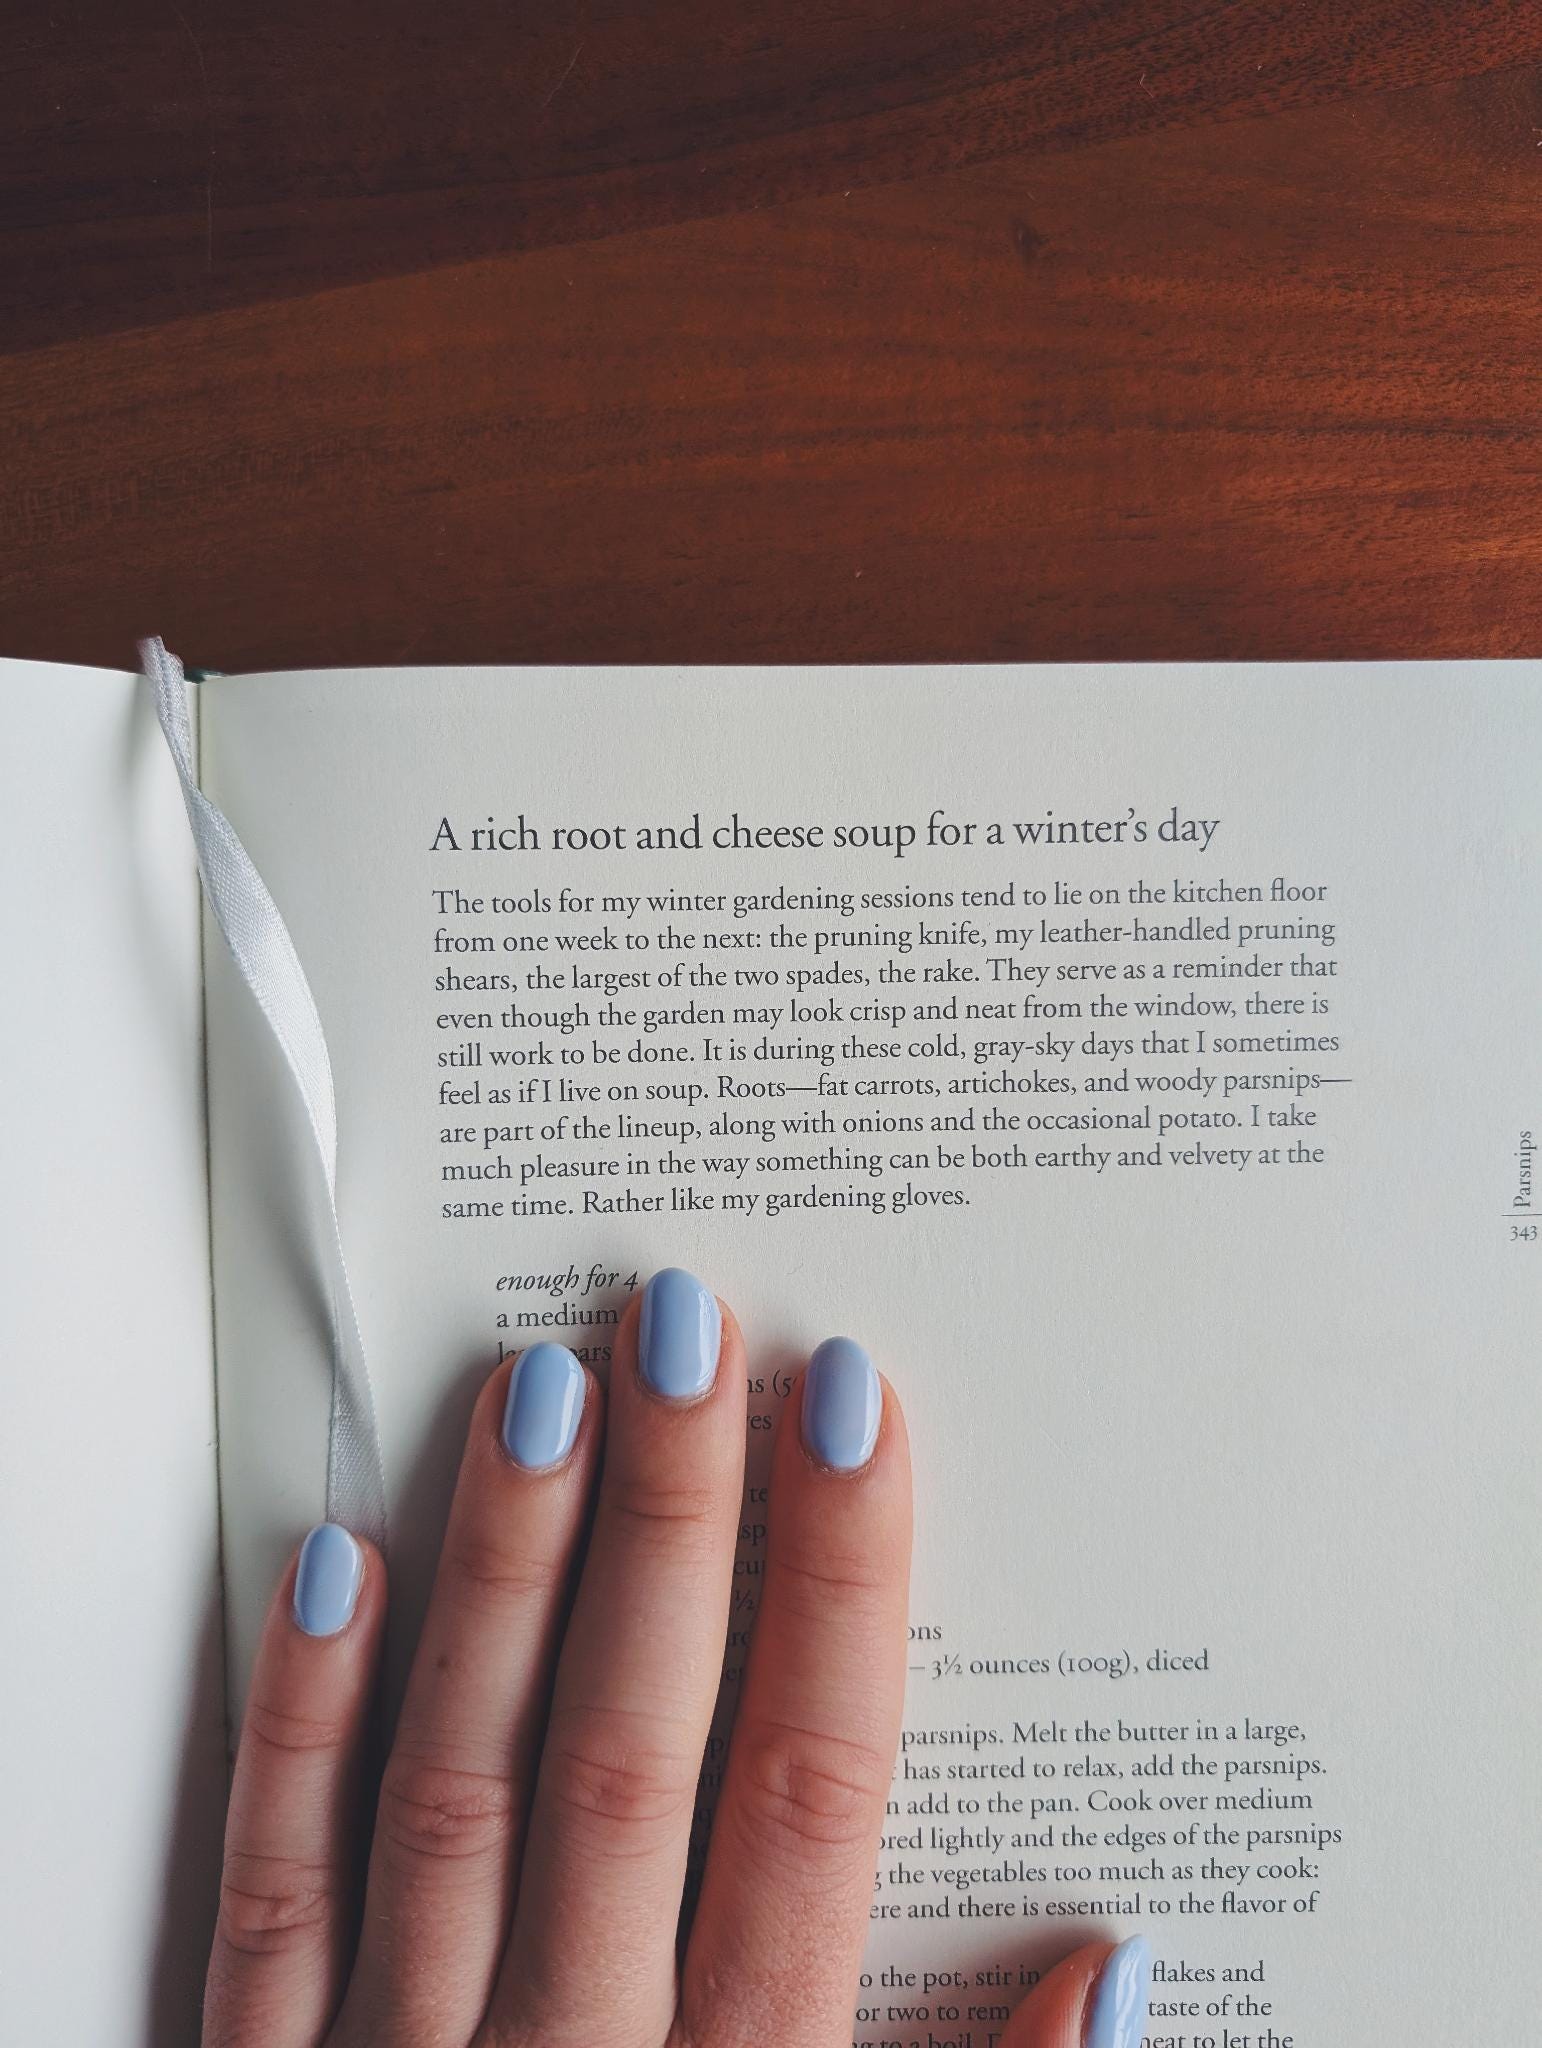 A rich root and cheese soup for a winter's day
The tools for my winter gardening sessions tend to lie on the kitchen floor
from one week to the next: the pruning knife, my leather-handled pruning
shears, the largest of the two spades, the rake. They serve as a reminder that
even though the garden may look crisp and neat from the window, there is
still work to be done. It is during these cold, gray-sky days that I sometimes
feel as if I live on soup. Roots—fat carrots, artichokes, and woody parsnips—
are part of the lineup, along with onions and the occasional potato. I take
much pleasure in the way something can be both earthy and velvety at the
same time. Rather like my gardening gloves.
Parsnips
343
enough for 4
a medium
– 3½ ounces (100g), diced
parsnips. Melt the butter in a large,
has started to relax, add the parsnips.
add to the pan. Cook over medium
lightly and the edges of the parsnips
the vegetables too much as they cook:
and there is essential to the flavor of
the pot, stir in flakes and
or two to taste of the
to a boil. to let the